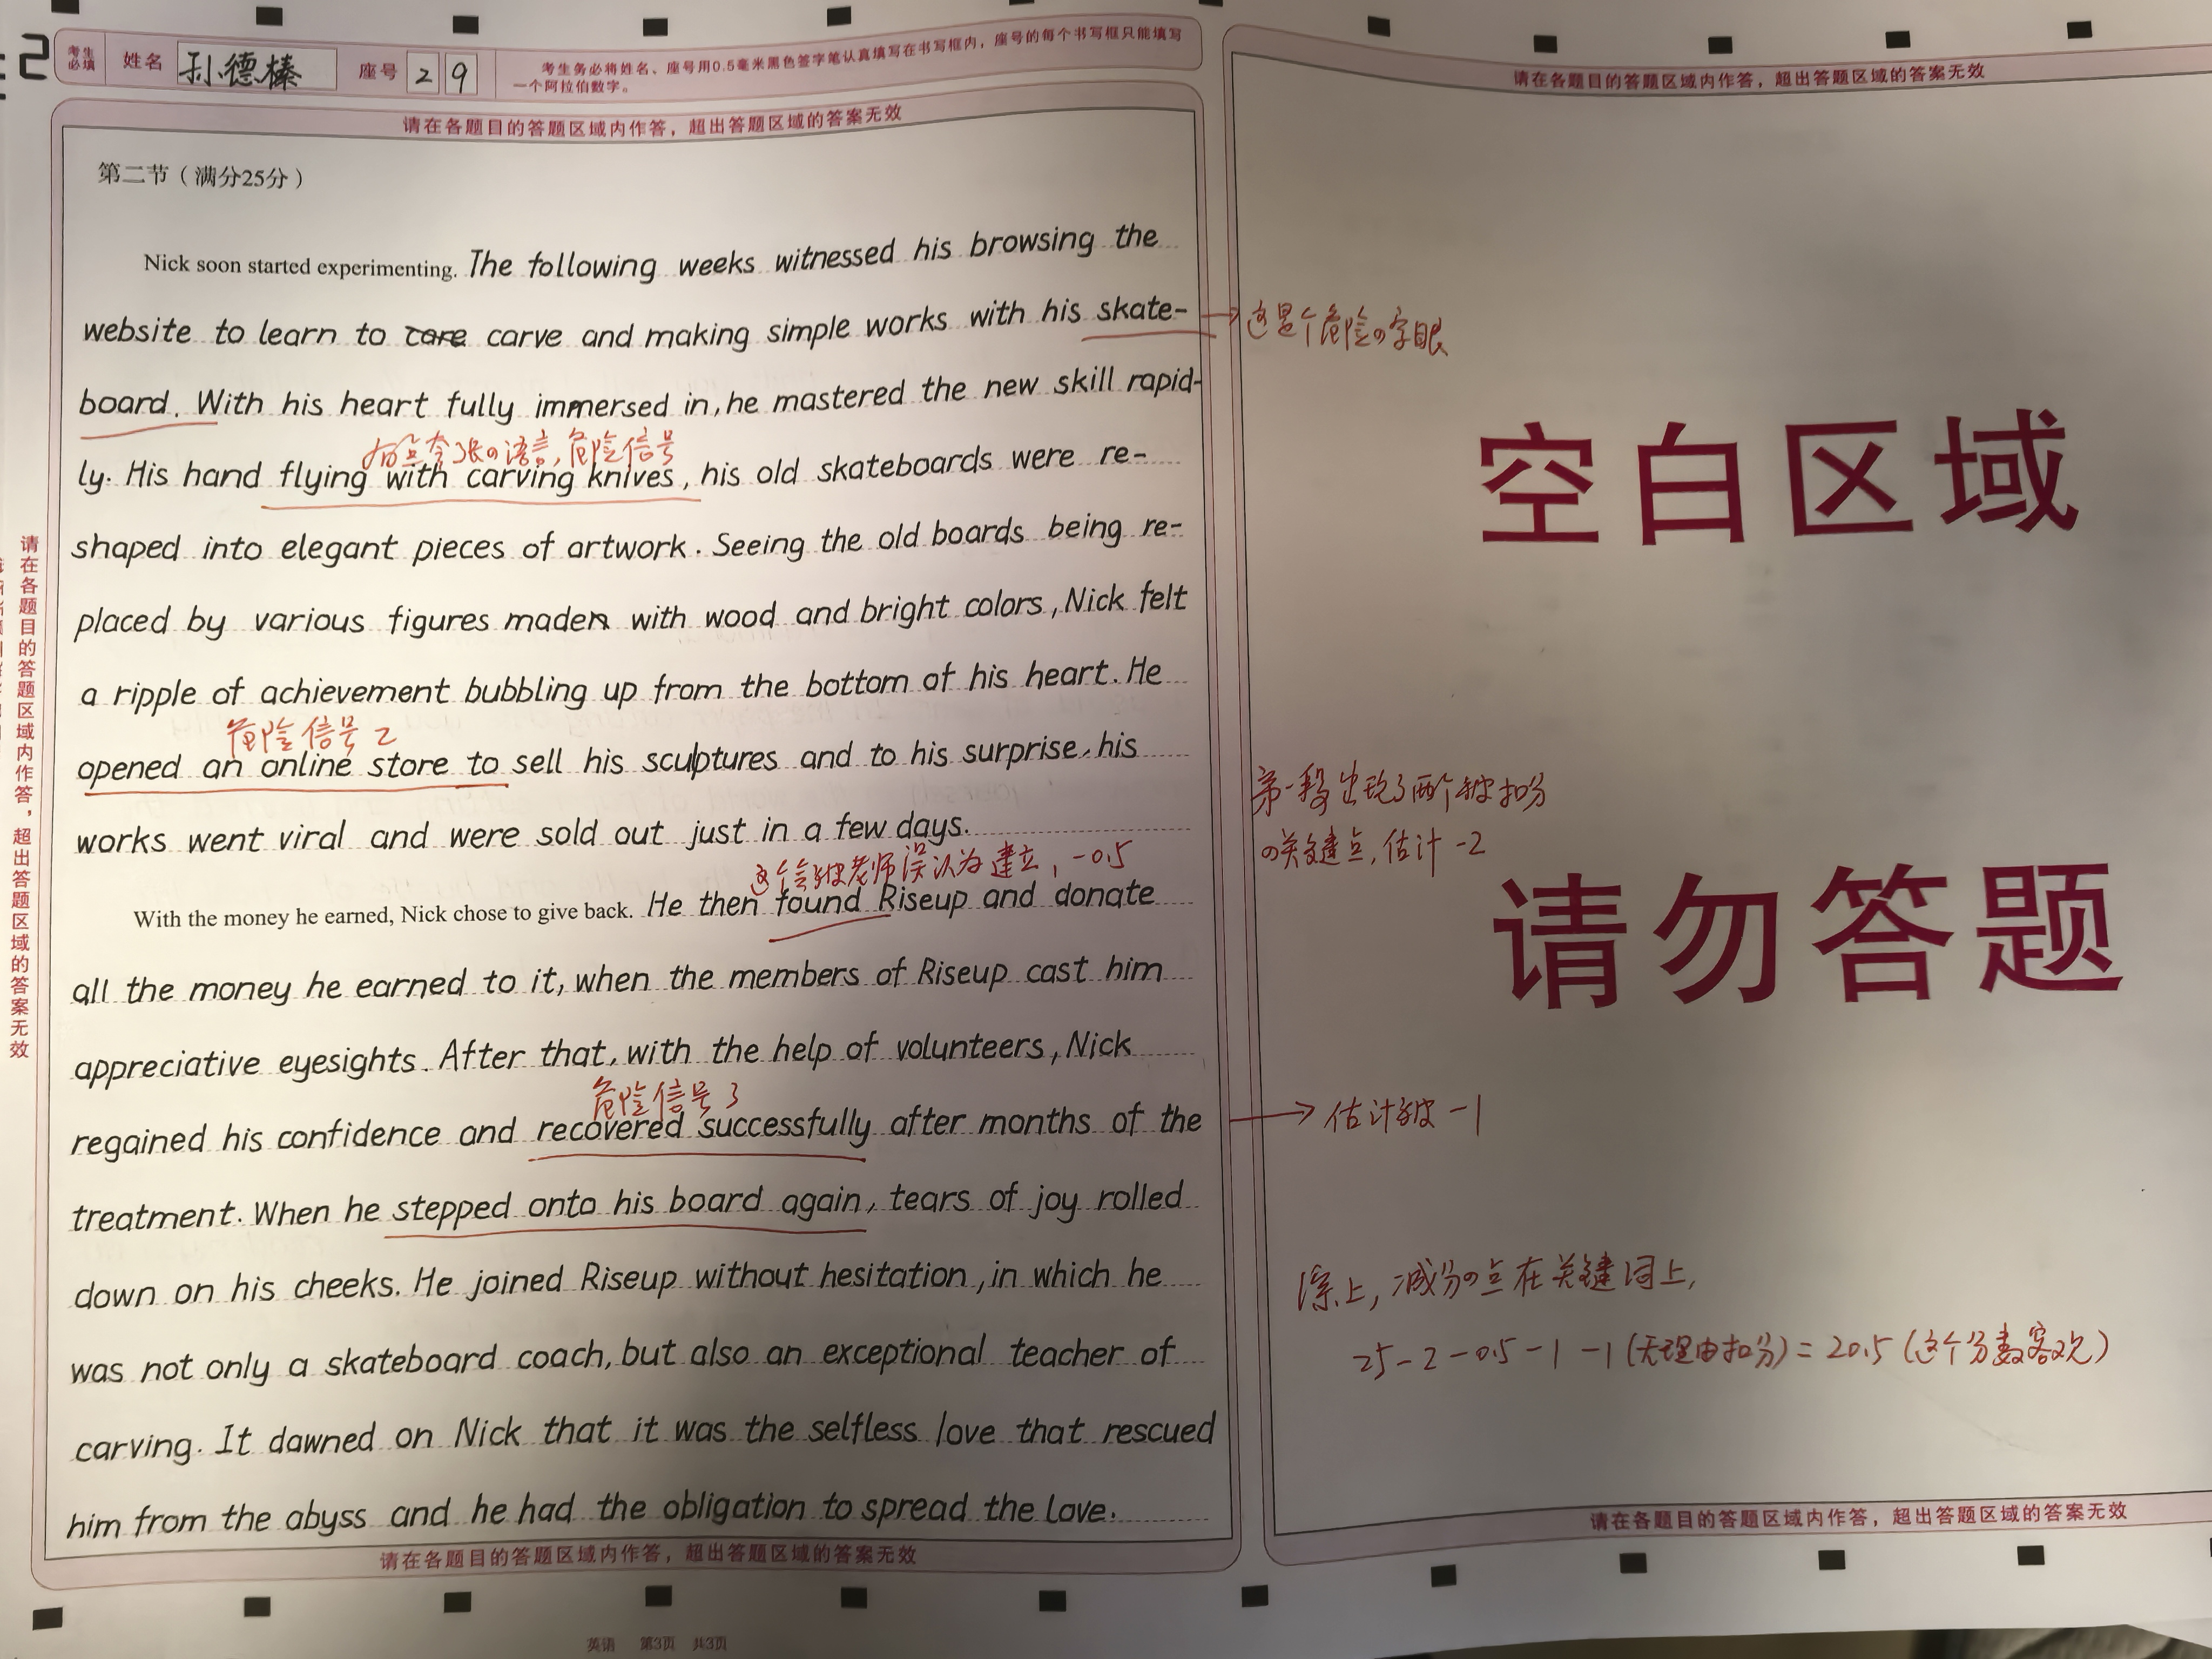 2
考生必填 姓名 孙德榛 座号 2 9 考生务必将姓名、座号用0.5毫米黑色签字笔认真填写在书写框内，座号的每个书写框只能填写
一个阿拉伯数字。
请在各题目的答题区域内作答，超出答题区域的答案无效
第二节（满分25分）
Nick soon started experimenting. The following weeks witnessed his browsing the
website to learn to care carve and making simple works with his skate-
board. With his heart fully immersed in, he mastered the new skill rapid-
有点夸张の语言，危险信号
ly. His hand flying with carving knives, his old skateboards were re-
shaped into elegant pieces of artwork. Seeing the old boards being re-
placed by various figures maden with wood and bright colors, Nick felt
a ripple of achievement bubbling up from the bottom of his heart. He
危险信号2
opened an online store to sell his sculptures and to his surprise, his
works went viral and were sold out just in a few days.
这个会被老师误认为建立，-0.5
With the money he earned, Nick chose to give back. He then found Riseup and donate
all the money he earned to it, when the members of Riseup cast him
appreciative eyesights. After that, with the help of volunteers, Nick
危险信号3
regained his confidence and recovered successfully after months of the
treatment. When he stepped onto his board again, tears of joy rolled
down on his cheeks. He joined Riseup without hesitation, in which he
was not only a skateboard coach, but also an exceptional teacher of
carving. It dawned on Nick that it was the selfless love that rescued
him from the abyss and he had the obligation to spread the love.
请在各题目的答题区域内作答，超出答题区域的答案无效
英语 第3页 共3页
请在各题目的答题区域内作答，超出答题区域的答案无效
请在各题目的答题区域内作答，超出答题区域的答案无效
这是个危险の字眼
空白区域
第一段出现了两个被扣分
の关键点，估计-2
请勿答题
估计被-1
综上，减分の点在关键词上，
25-2-0.5-1-1(无理由扣分)=20.5(这个分数客观)
请在各题目的答题区域内作答，超出答题区域的答案无效